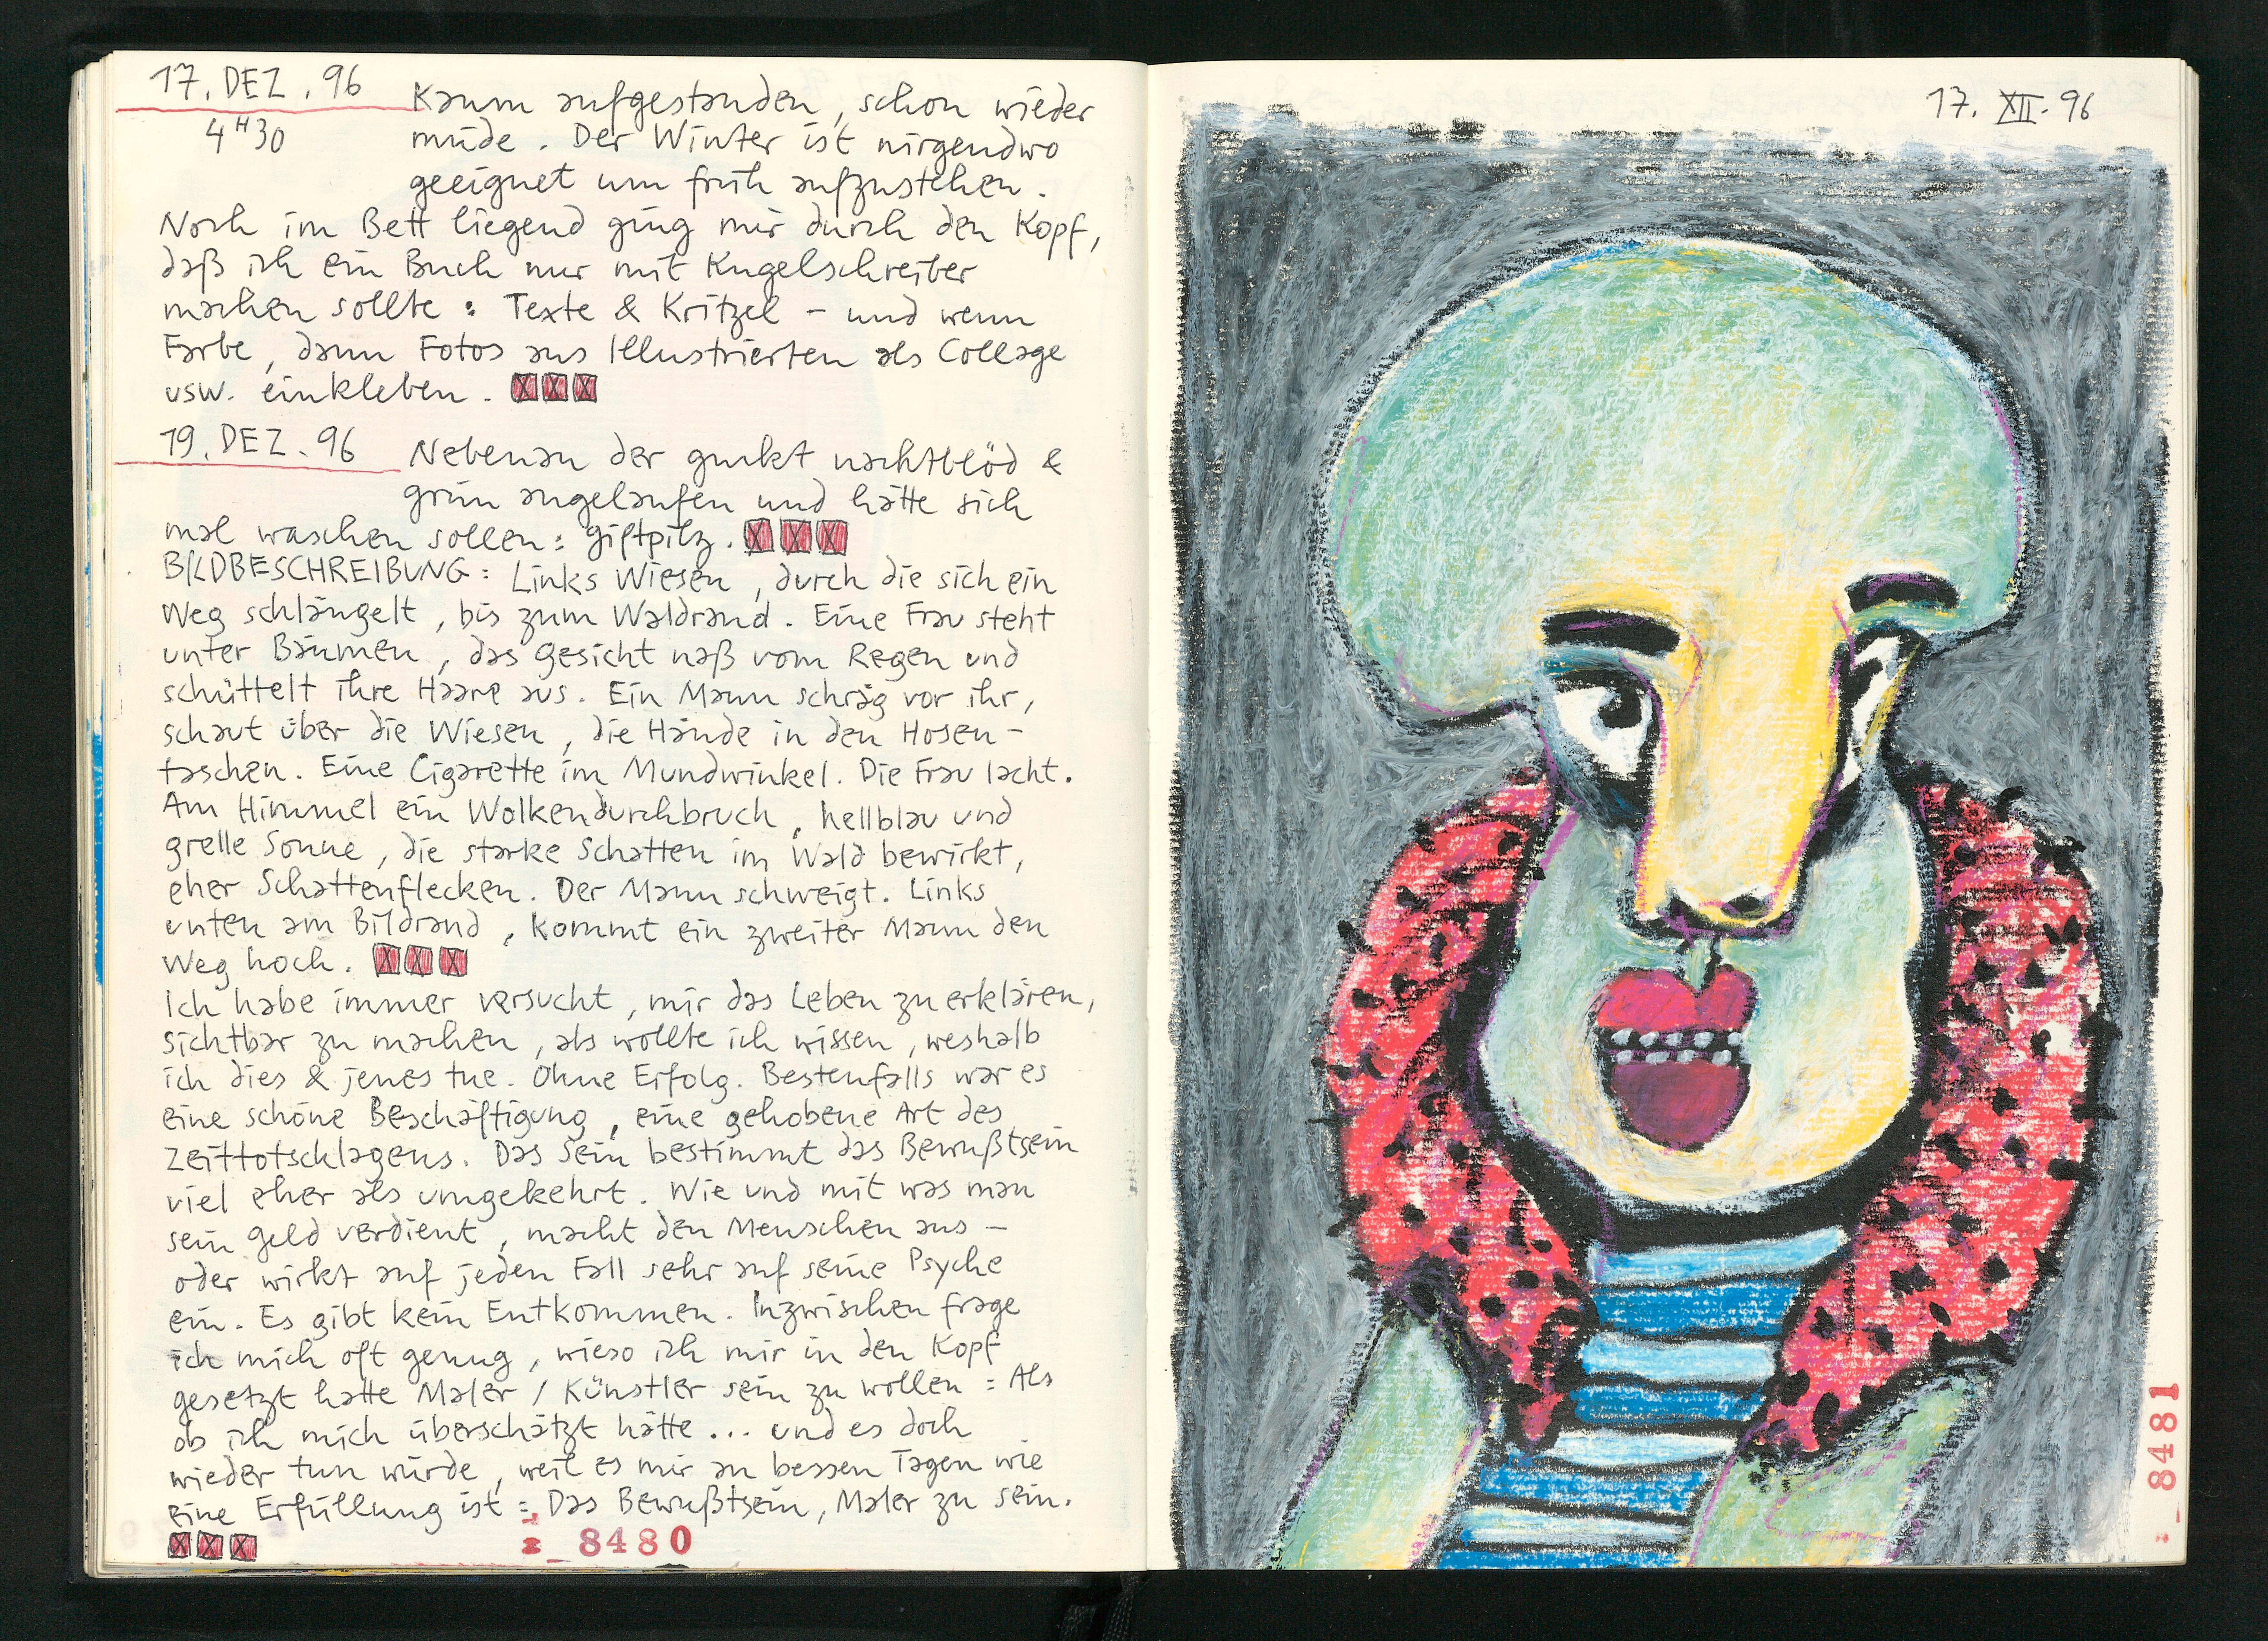 17. DEZ. 96
4 H 30
Kaum aufgestanden, schon wieder
müde. Der Winter ist nirgendwo
geeignet um früh aufzustehen.
Noch im Bett liegend ging mir durch den Kopf,
daß ich ein Buch nur mit Kugelschreiber
machen sollte: Texte & Kritzel – und wenn
Farbe, dann Fotos aus Illustrierten als Collage
usw. einkleben.
19. DEZ. 96
Nebenan der guckt nachtblöd &
grün angelaufen und hätte sich
mal waschen sollen: Giftpilz.
BILDBESCHREIBUNG: Links Wiesen, durch die sich ein
Weg schlängelt, bis zum Waldrand. Eine Frau steht
unter Bäumen, das Gesicht naß vom Regen und
schüttelt ihre Haare aus. Ein Mann schräg vor ihr,
schaut über die Wiesen, die Hände in den Hosen-
taschen. Eine Cigarette im Mundwinkel. Die Frau lacht.
Am Himmel ein Wolkendurchbruch, hellblau und
grelle Sonne, die starke Schatten im Wald bewirkt,
eher Schattenflecken. Der Mann schweigt. Links
unten am Bildrand, kommt ein zweiter Mann den
Weg hoch.
Ich habe immer versucht, mir das Leben zu erklären,
sichtbar zu machen, als wollte ich wissen, weshalb
ich dies & jenes tue. Ohne Erfolg. Bestenfalls war es
eine schöne Beschäftigung, eine gehobene Art des
Zeittotschlagens. Das Sein bestimmt das Bewußtsein
viel eher als umgekehrt. Wie und mit was man
sein Geld verdient, macht den Menschen aus –
oder wirkt auf jeden Fall sehr auf seine Psyche
ein. Es gibt kein Entkommen. Inzwischen frage
ich mich oft genug, wieso ich mir in den Kopf
gesetzt hatte Maler / Künstler sein zu wollen: Als
ob ich mich überschätzt hätte... und es doch
wieder tun würde, weil es mir an bessen Tagen wie
eine Erfüllung ist: Das Bewußtsein, Maler zu sein.
8480
17. XII. 96
8481